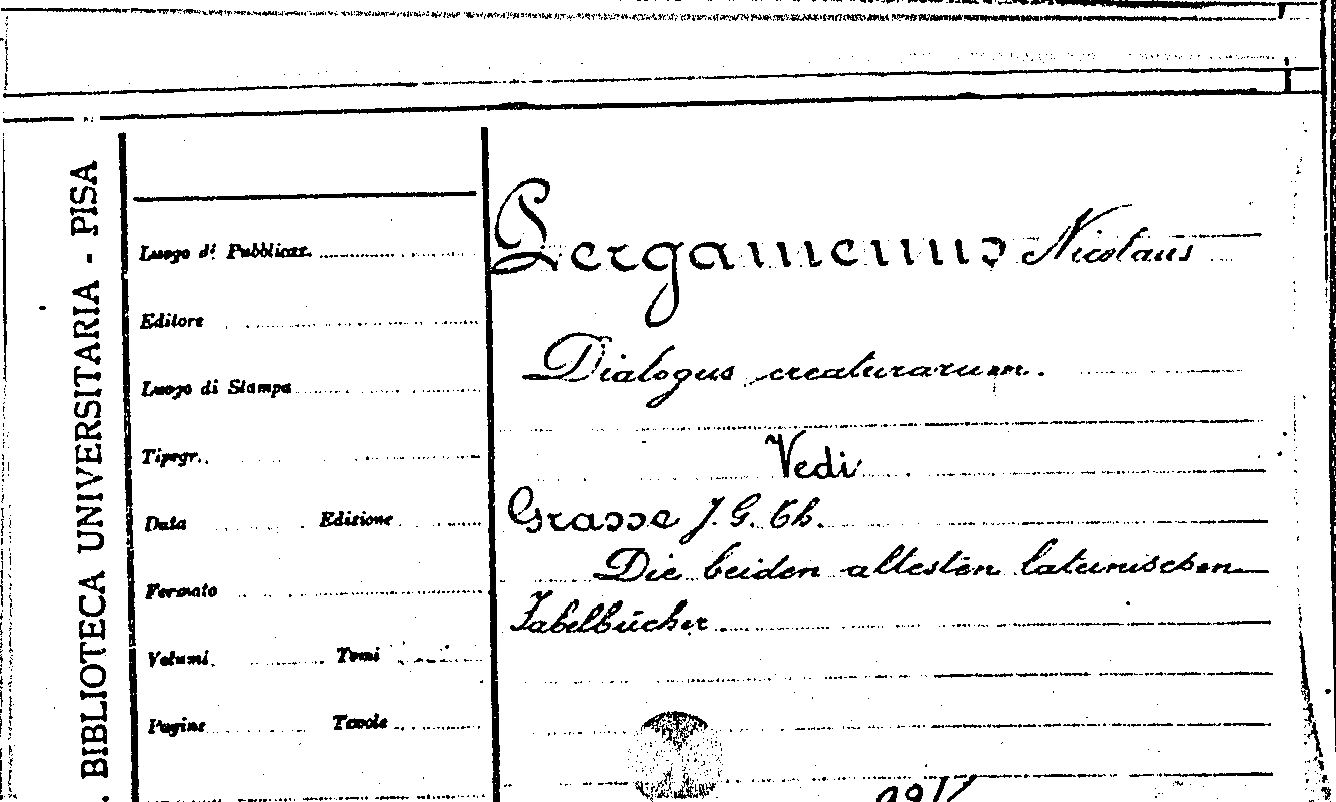 . BIBLIOTECA UNIVERSITARIA - PISA
Luogo di Pubblicaz.
Editore
Luogo di Stampa
Tipogr.
Data Edizione
Formato
Volumi Tomi
Pagine Tavole
Pergamenus Nicolaus
Dialogus creaturarum.
Vedi
Grasse J. G. Th.
Die beiden altesten lateinischen
Fabelbücher